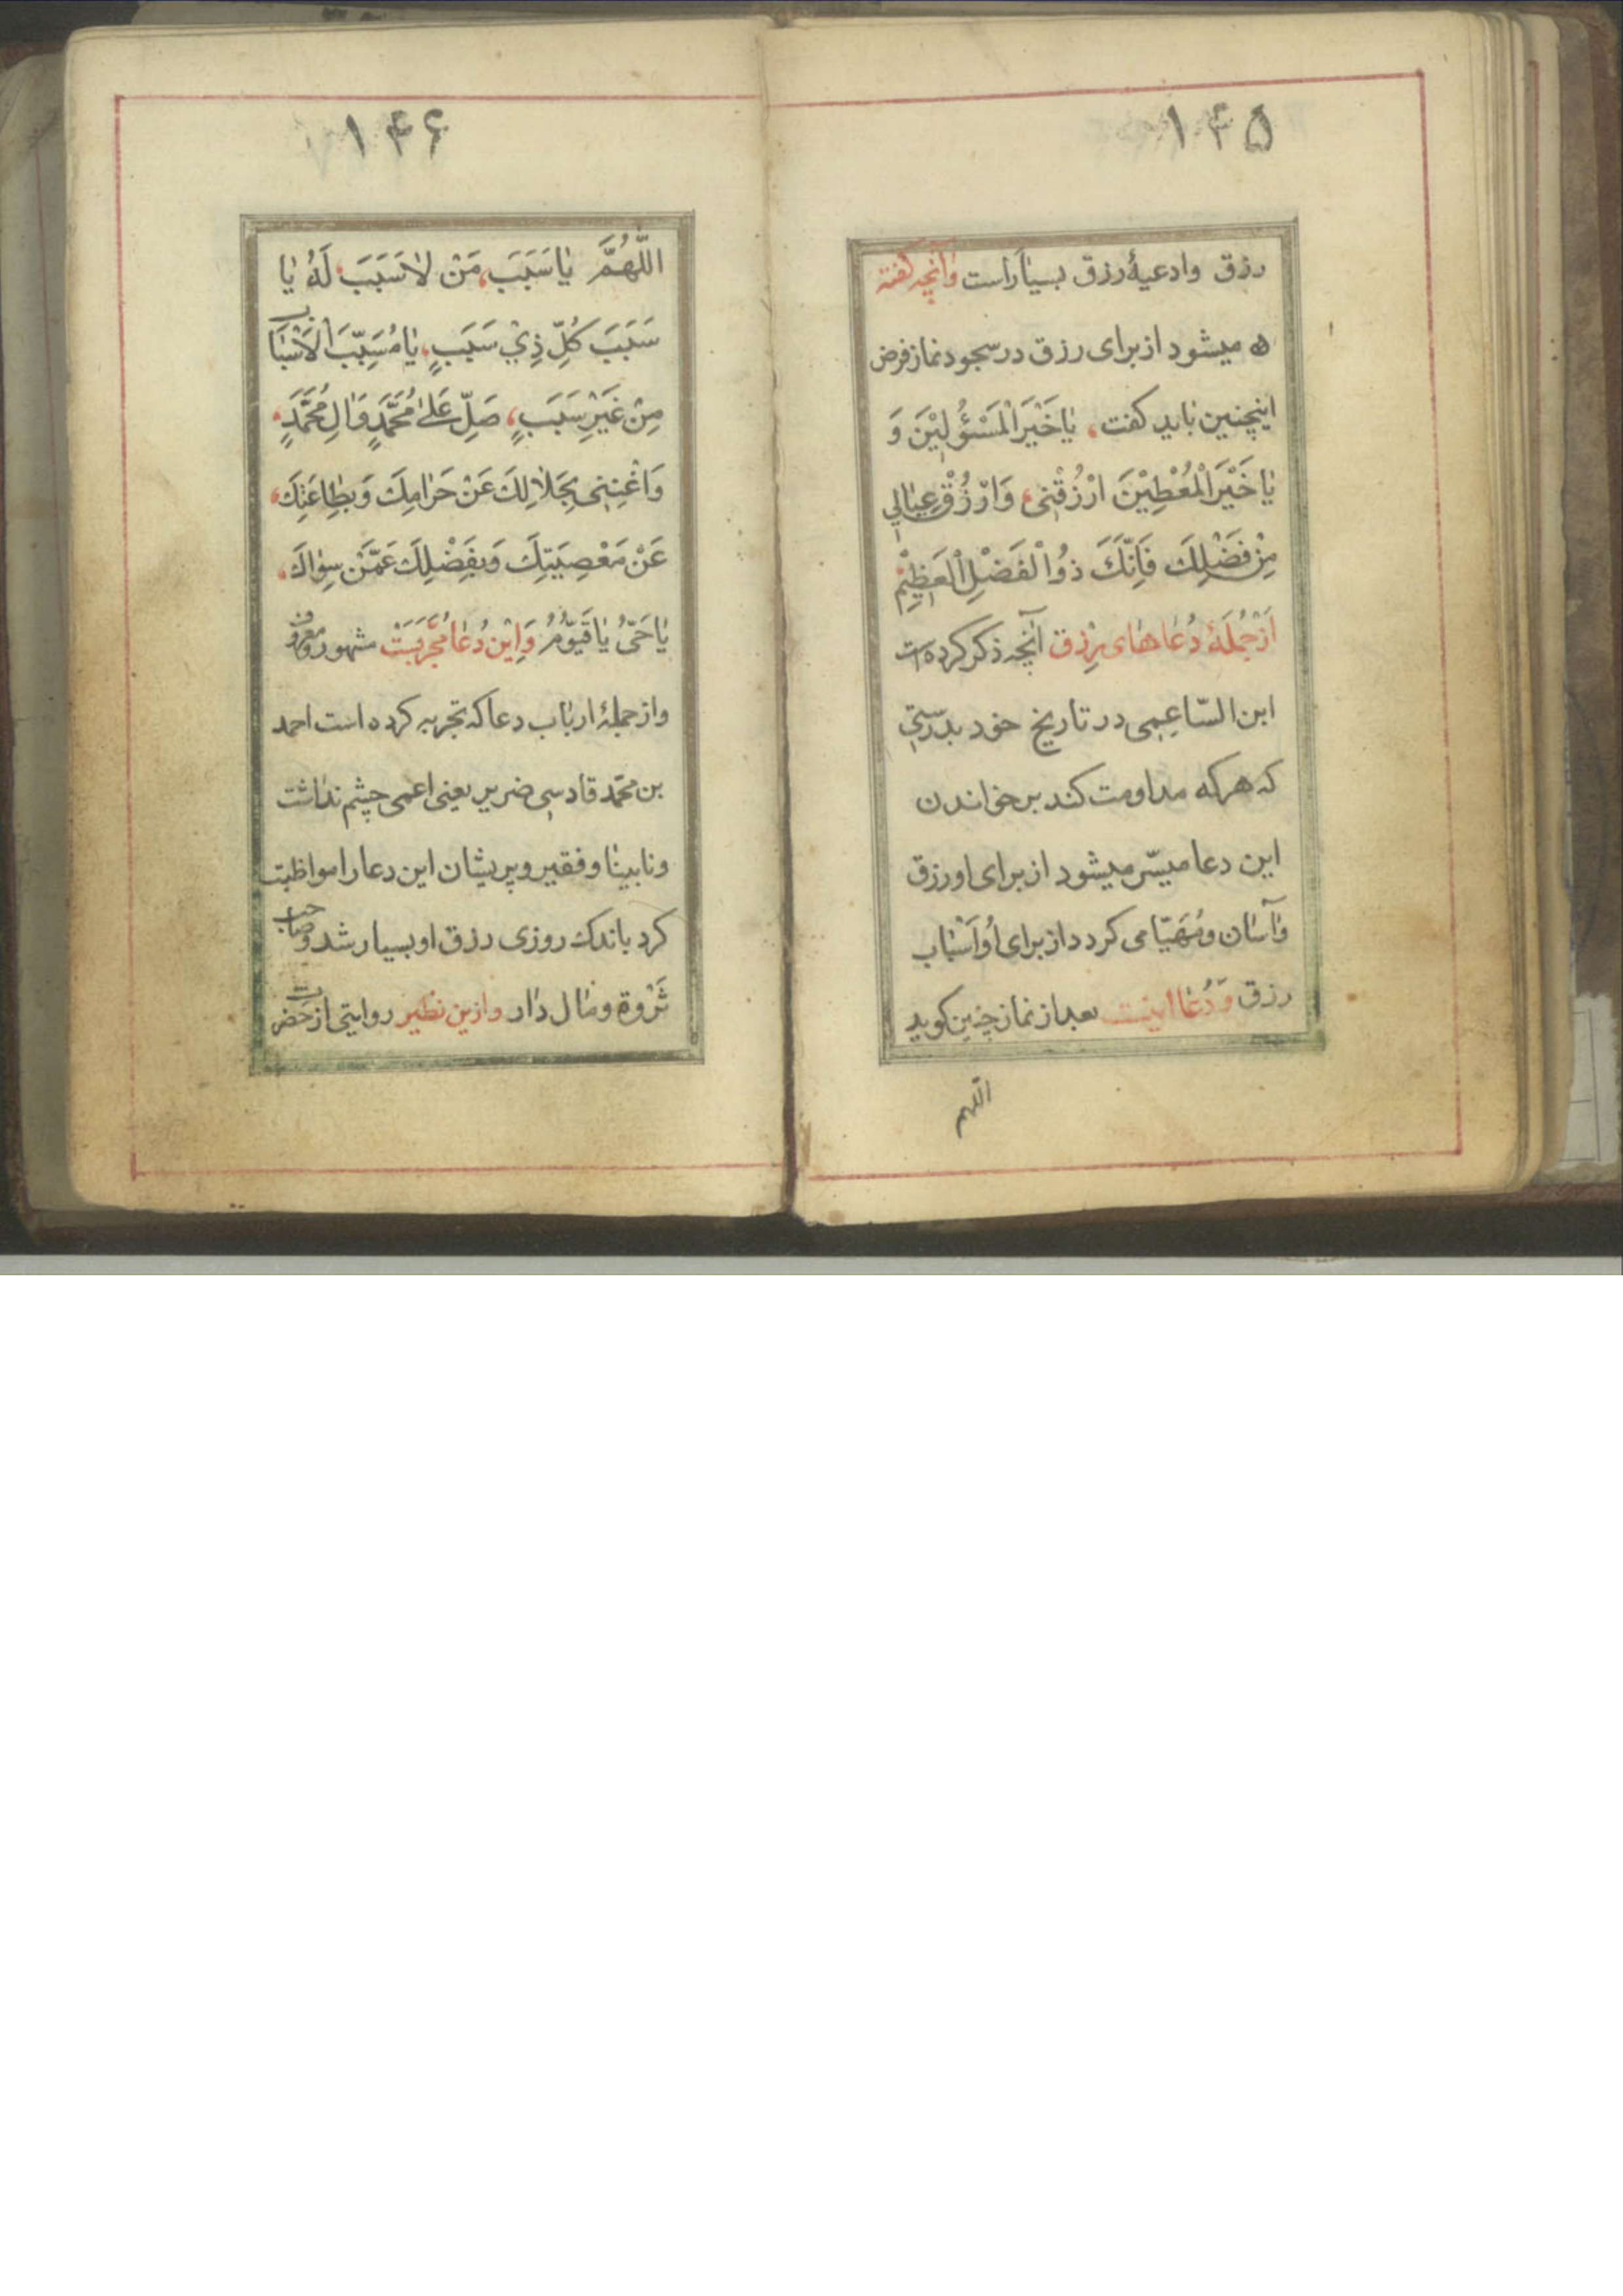 ۱۴۵
رزق وادعیهٔ رزق بسیار است وآنچه گفته
ه میشود از برای رزق در سجود نماز فرض
اینچنین باید کفت، یٰا خَیْرَ الْمَسْؤُلِیْنَ وَ
یٰا خَیْرَ الْمُعْطِیْنَ ارْزُقْنِی، وَارْزُقْ عِیٰالِی
مِنْ فَضْلِكَ فَاِنَّكَ ذوُ الْفَضْلِ الْعَظِیْمِ
اَزْ جُمْلَهٔ دُعٰاهٰای رِزق آنچه ذکر کرده است
ابن السّاعِی در تاریخ خود بدرستی
که هرکه مداومت کند بر خواندن
این دعا میسّر میشود از برای او رزق
وآسٰان ومُهَیّا می کردد از برای اُو اَسْبٰاب
رزق وَدُعٰا اینست بعد از نماز چنین کوید
اللهم
۱۴۶
اللّٰهُمَّ یٰا سَبَبَ، مَنْ لاٰ سَبَبَ، لَهُ یٰا
سَبَبَ کُلِّ ذِیْ سَبَبٍ، یٰا مُسَبِّبَ الْاَسْبٰاب
مِنْ غَیْرِ سَبَبٍ، صَلِّ عَلیٰ مُحَمَّدٍ وَاٰلِ مُحَمَّدٍ،
وَاَغْنِنِی بِحَلاٰلِكَ عَنْ حَرٰامِكَ وَبِطٰاعَتِكَ،
عَنْ مَعْصِیَتِكَ وَبِفَضْلِكَ عَمَّنْ سِوٰاكَ،
یٰا حَیُّ یٰا قَیُّوْمُ وَاِیْن دُعٰا مُجَرَّبَسْت مشهور ومعروف
واز جملهٔ ارباب دعا که تجربه کرده است احمد
بن محمّد قادسی ضریر یعنی اعمی چشم نداشت
ونابینا وفقیر وپریشان این دعا را مواظبت
کرد باندك روزی رزق او بسیار شد وصاحب
ثَرْوة ومٰال دٰار وازین نظیر روایتی از حضرت